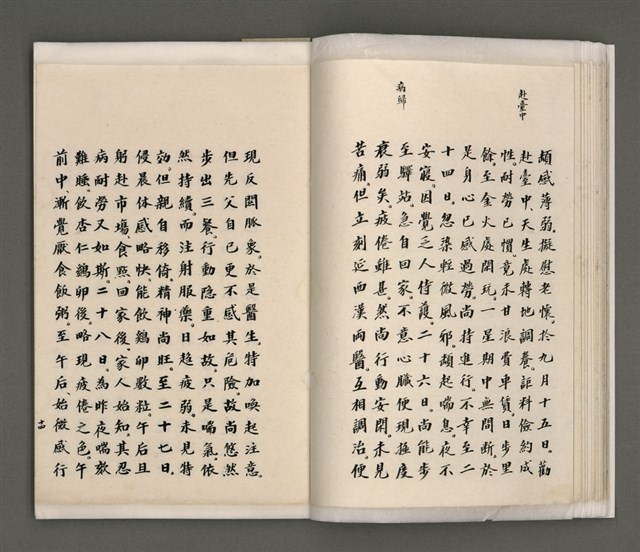 赴臺中
病歸
頗感薄弱。擬慰老懷。於九月十五日。勸
赴臺中。天生處轉地調養。詎料儉約成
性。耐勞已慣。竟未甘浪費車賃。日步里
餘。至金火處閑玩。一星期中無間斷。於
是身心已感過勞。尚持進行。不幸至二
十四日。忽染輕微風邪。頗起喘息。夜不
安寢。因覺乏人侍護。二十六日。尚能步
至驛站。急自回家。不意心臟便現極度
衰弱矣。疲倦雖甚。然尚行動安閑。未見
苦痛。但立刻延西漢兩醫。互相調治。便
現反關脈象。於是醫生。特加喚起注意。
但先父自己更不感其危險。故尚悠然
步出三餐。行動隱重如故。只是喘氣依
然持續。而注射服藥。日趨疲弱。未見特
効。但親自移倚。精神尚旺。至二十七日。
侵晨体感略快。能飲鷄卵數粒。午后且
躬赴市場。食點。回家後。家人始知。其忍
病耐勞又如斯。二十八日。為昨夜喘欬
難睡。飲杏仁鷄卵後。略現疲倦之色。午
前中。漸覺厭食飯粥。至午后始微感行
十四